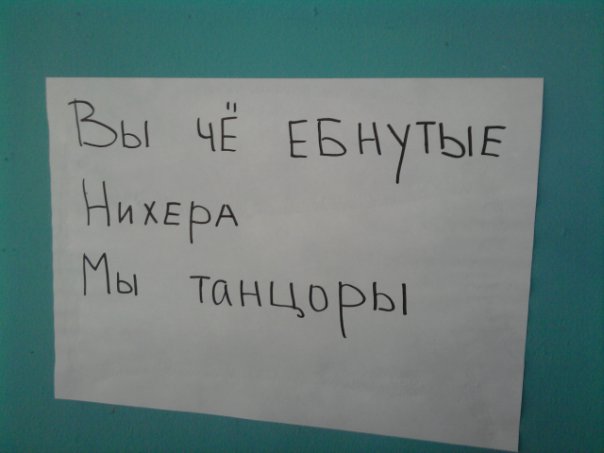 Вы чё ебнутые
Нихера
Мы танцоры